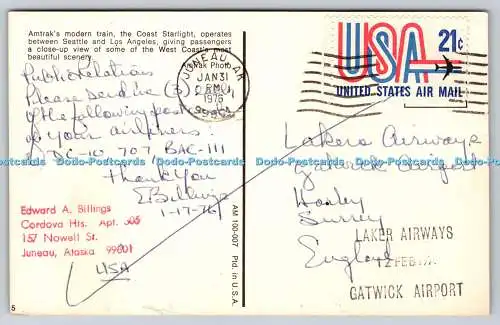 Amtrak's modern train, the Coast Starlight, operates
between Seattle and Los Angeles, giving passengers
a close-up view of some of the West Coast's most
beautiful scenery.
Amtrak Photo
Public Relations
Please send me (3)
of the following post
of your airliners:
DC-10 707 BAC-111
Thank You
E Billings
1-17-76
Edward A. Billings
Cordova Hts. Apt. 305
157 Nowell St.
Juneau, Alaska 99801
USA
AM 100-007 Ptd. in U.S.A.
JUNEAU, AK
JAN 31
PM
1976
USA 21¢
UNITED STATES AIR MAIL
Lakers Airways
Gatwick Airport
Horley
Surrey
England
LAKER AIRWAYS
12 FEB
GATWICK AIRPORT
Domo-Postcards Domo-Postcards Domo-Postcards Domo-Postcards
www.domo-postcards.com